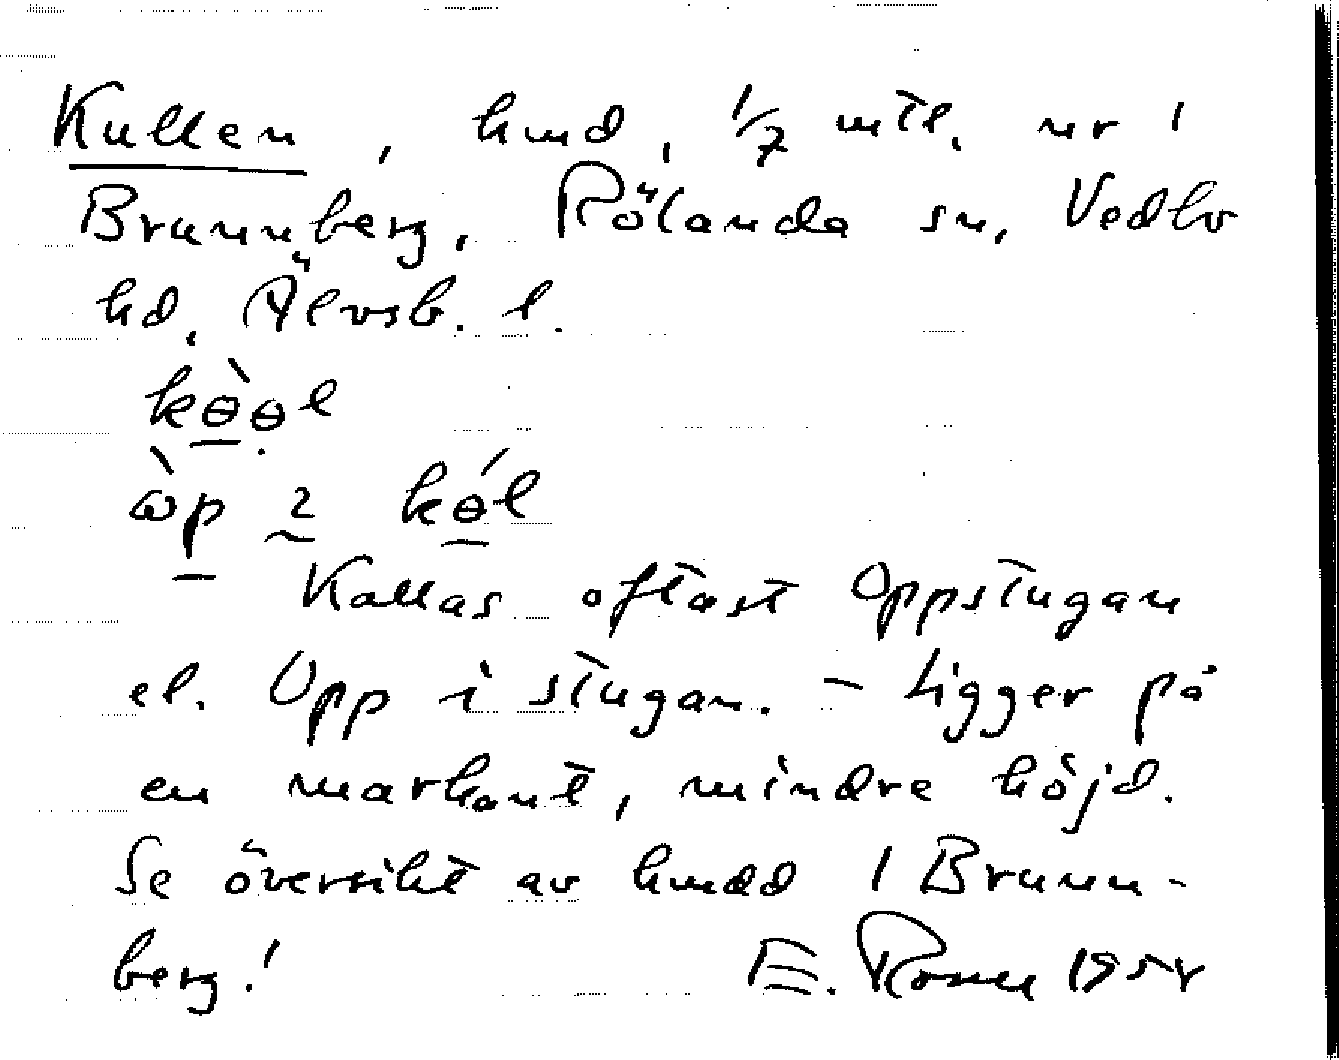 Kullen, hmd, 1/7 mtl. nr 1
Brunnberg, Rölanda sn, Vedbo
hd, Älvsb. l.
kɵ̀ɵl
ɷ̀p 2 kɵ́l
Kallas oftast Oppstugan
el. Opp i stugan. – Ligger på
en markant, mindre höjd.
Se översikt av hmdd 1 Brunn-
berg! E.